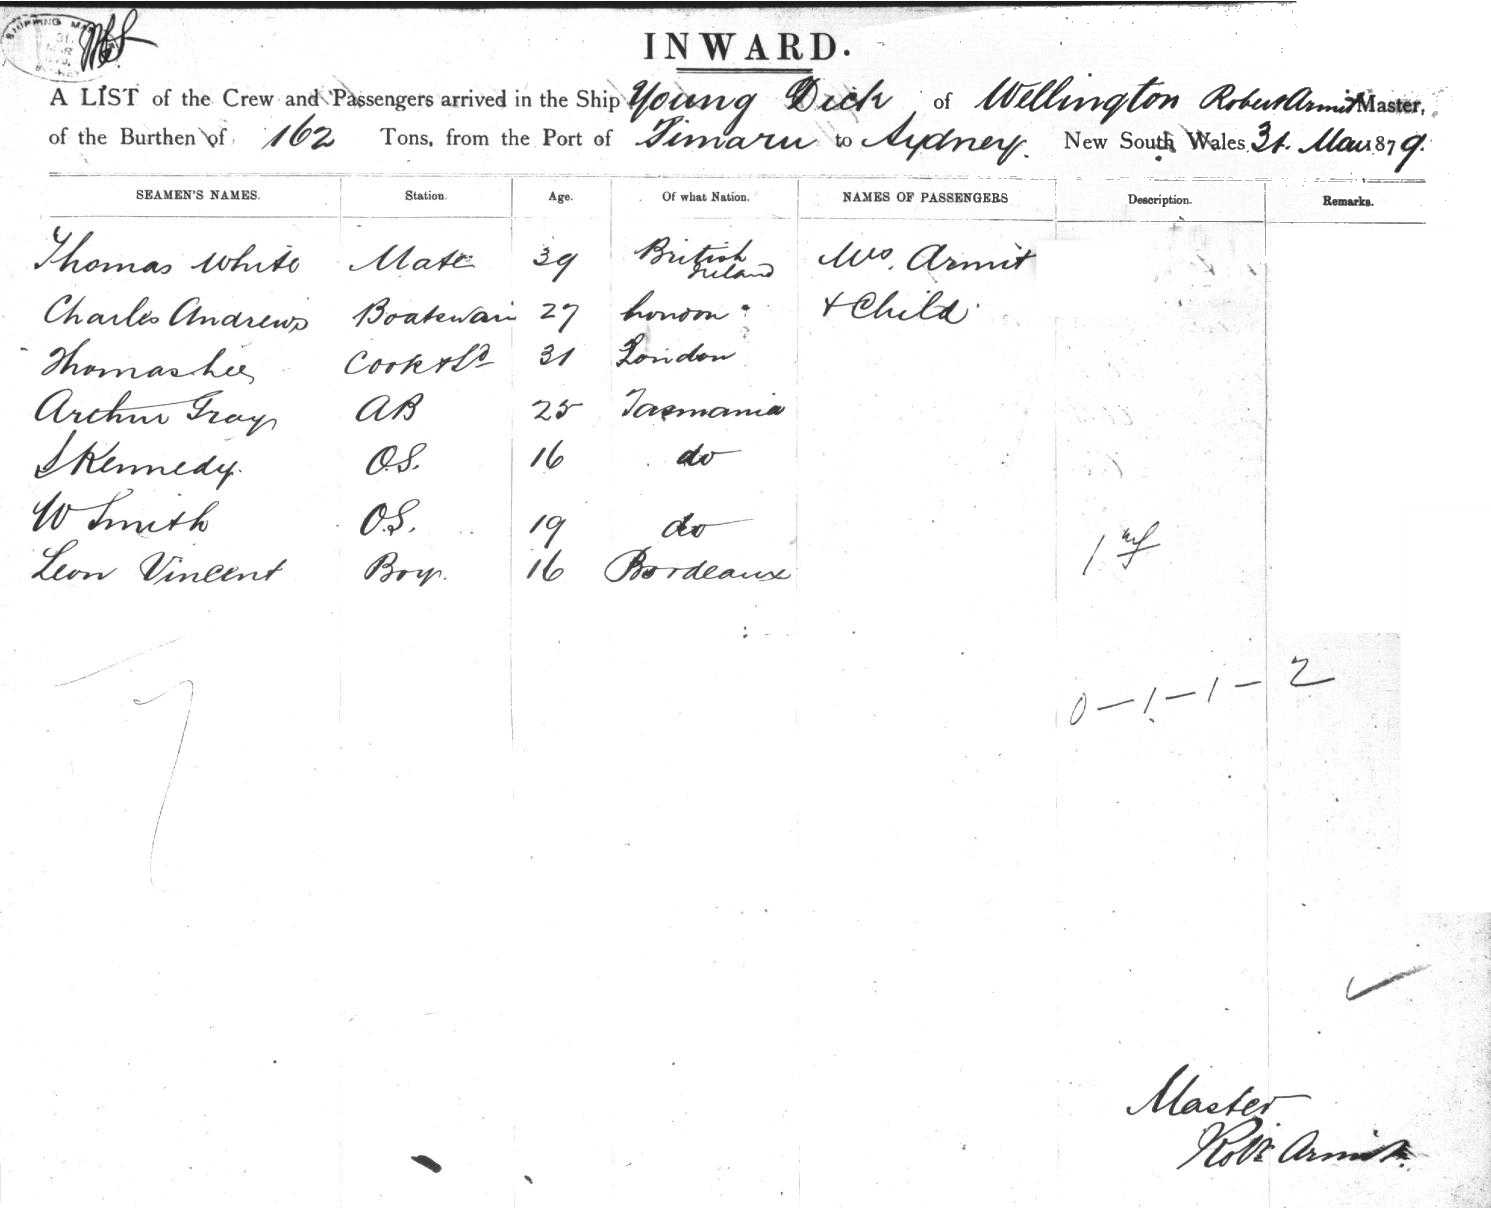 INWARD.
A LIST of the Crew and Passengers arrived in the Ship Young Dick of Wellington Robert Armit Master,
of the Burthen of 162 Tons, from the Port of Timaru to Sydney. New South Wales 31. Mar 1879.
SEAMEN'S NAMES. Station. Age. Of what Nation. NAMES OF PASSENGERS Description. Remarks.
Thomas White Mate 39 British Ireland Mrs. Armit
Charles Andrews Boatswain 27 London & Child
Thomas Lee Cook & Sd 31 London
Arthur Gray AB 25 Tasmania
S Kennedy. O.S. 16 do
W Smith O.S. 19 do
Leon Vincent Boy. 16 Bordeaux
1
7
0 — 1 — 1 — 2
Master
Robt Armit.